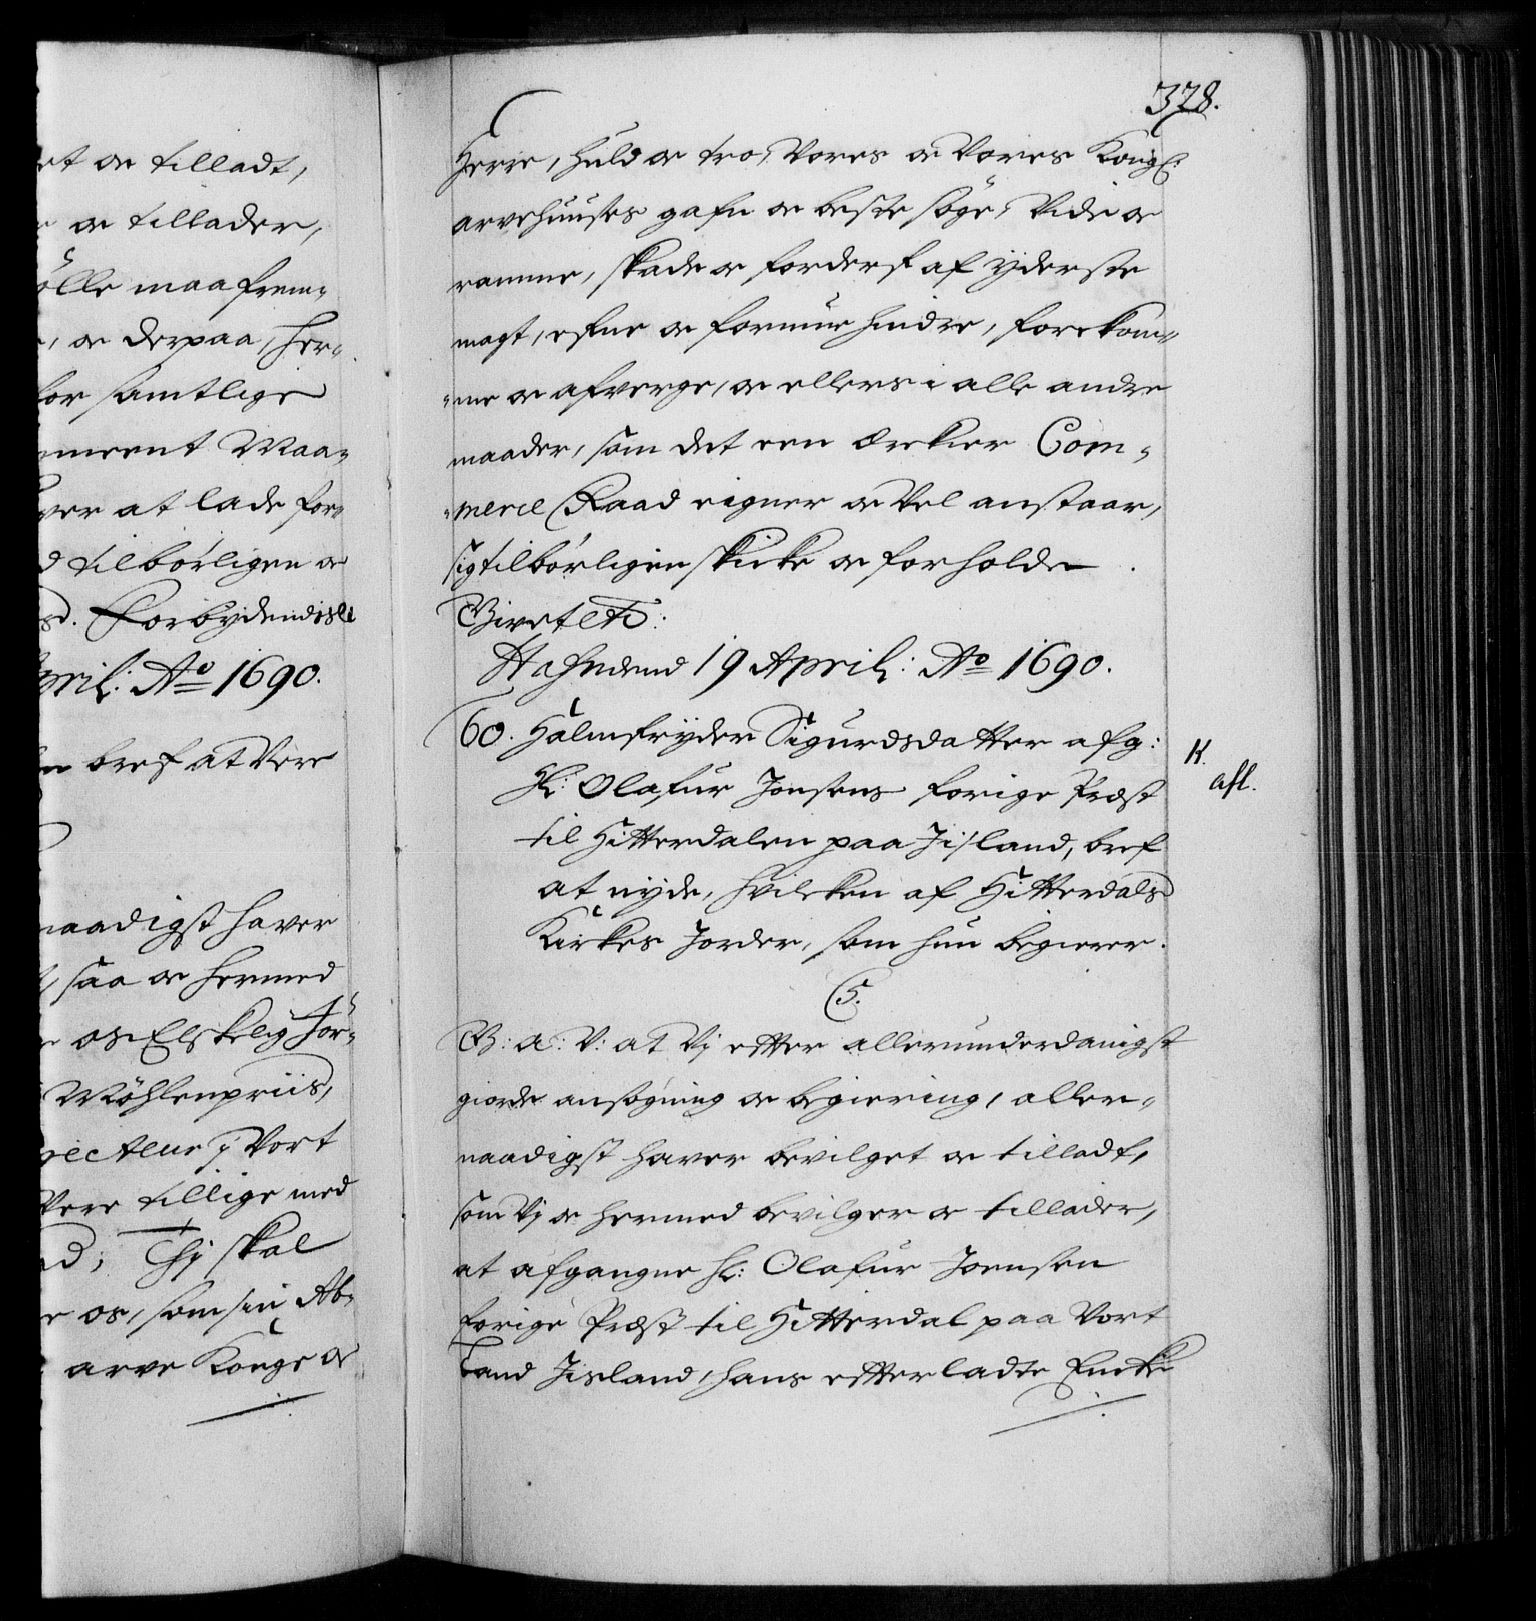 et oc tilladt,
oc tillader,
ölle maa frem-
, oc derpaa, her-
for samtlige
ment Maa-
ver at lade for-
d tilbørligen oc
Forbydendis etc
April: Ao 1690.
bref at Vere
naadigst haver
, saa oc hermed
os Elskelig Jör-
Möhlenpriis,
recteur j Vort
Vere tillige med
d; Thj skal
os, som sin Ab-
arve Konge oc
378.
Herre, huld oc tro, Vores oc Vores Kongl:
arvehuuses gafn oc beste söge, Vide oc
ramme, skade oc forderf af yderste
magt, efne oc formue hindre, forekom-
-me oc afverge, oc ellers i alle andre
maader, som det een ærekier Com-
-merce Raad eigner oc Vel anstaar,
sig tilbörligen skicke oc forholde
Givet etc:
Hafniæ d 19 April: Ao 1690.
60. Halmfryder Sigurdsdatter afg:
Hl: Olafur Jonsens forige Præst
til Hitterdalen paa Jisland, bref
at nyde, hvilcken af Hitterdals
Kirkes Jorder, som hun begierer.
K.
afl.
C5.
G: A: V: at Vj efter allerunderdanigst
giorde ansögning oc begiering, aller-
naadigst haver bevilget oc tilladt,
som Vj oc hermed bevilger oc tillader,
at afgangne Hl: Olafur Joensen
forige Præst til Hitterdal paa Vort
Land Jisland, hans efterladte Encke